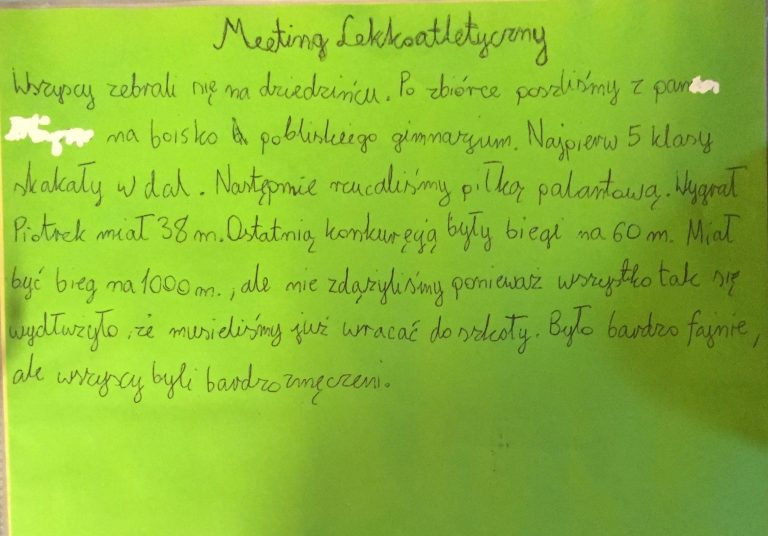 Meeting Lekkoatletyczny
Wszyscy zebrali się na dziedzińcu. Po zbiórce poszliśmy z pan
na boisko pobliskiego gimnazjum. Najpierw 5 klasy
skakały w dal. Następnie rzucaliśmy piłką palantową. Wygrał
Piotrek miał 38 m. Ostatnią konkuręją były biegi na 60 m. Miał
być bieg na 1000 m., ale nie zdążyliśmy ponieważ wszystko tak się
wydłużyło, że musieliśmy już wracać do szkoły. Było bardzo fajnie,
ale wszyscy byli bardzo zmęczeni.